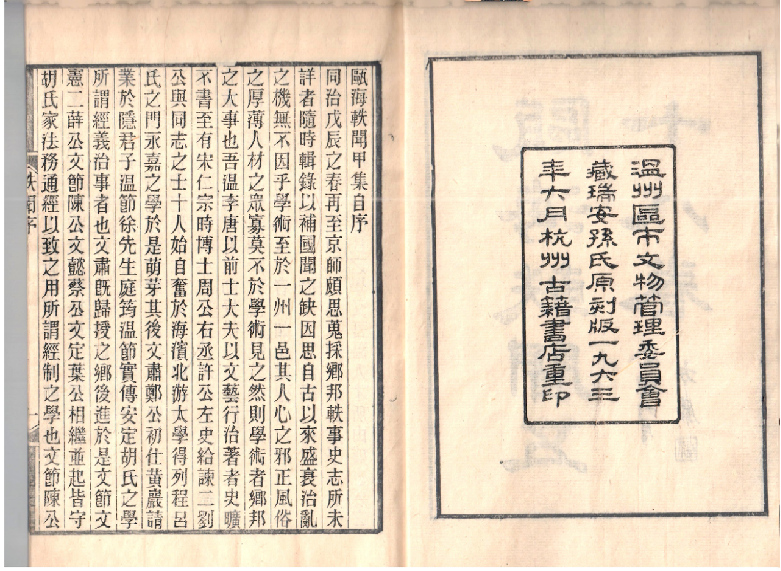 温州區市文物管理委員會
藏瑞安孫氏原刻版一九六三
年六月杭州古籍書店重印
甌海軼聞甲集自序
同治戊辰之春再至京師頗思蒐採鄉邦軼事史志所未
詳者隨時輯錄以補國聞之缺因思自古以來盛衰治亂
之機無不因乎學術至於一州一邑其人心之邪正風俗
之厚薄人材之眾寡莫不於學術見之然則學術者鄉邦
之大事也吾溫李唐以前士大夫以文藝行治著者史曠
不書至有宋仁宗時博士周公右丞許公左史給諫二劉
公與同志之士十人始自奮於海濱北游太學得列程呂
氏之門永嘉之學於是萌芽其後文肅鄭公初仕黃巖請
業於隱君子溫節徐先生庭筠溫節實傳安定胡氏之學
所謂經義治事者也文肅既歸授之鄉後進於是文節文
憲二薛公文節陳公文懿蔡公文定葉公相繼並起皆守
胡氏家法務通經以致之用所謂經制之學也文節陳公